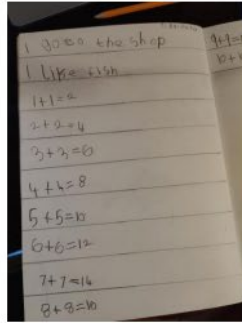 I goes the shop
I Like fish
1+1=2
2+2=4
3+3=6
4+4=8
5+5=10
6+6=12
7+7=14
8+8=16
9+9=
10+1